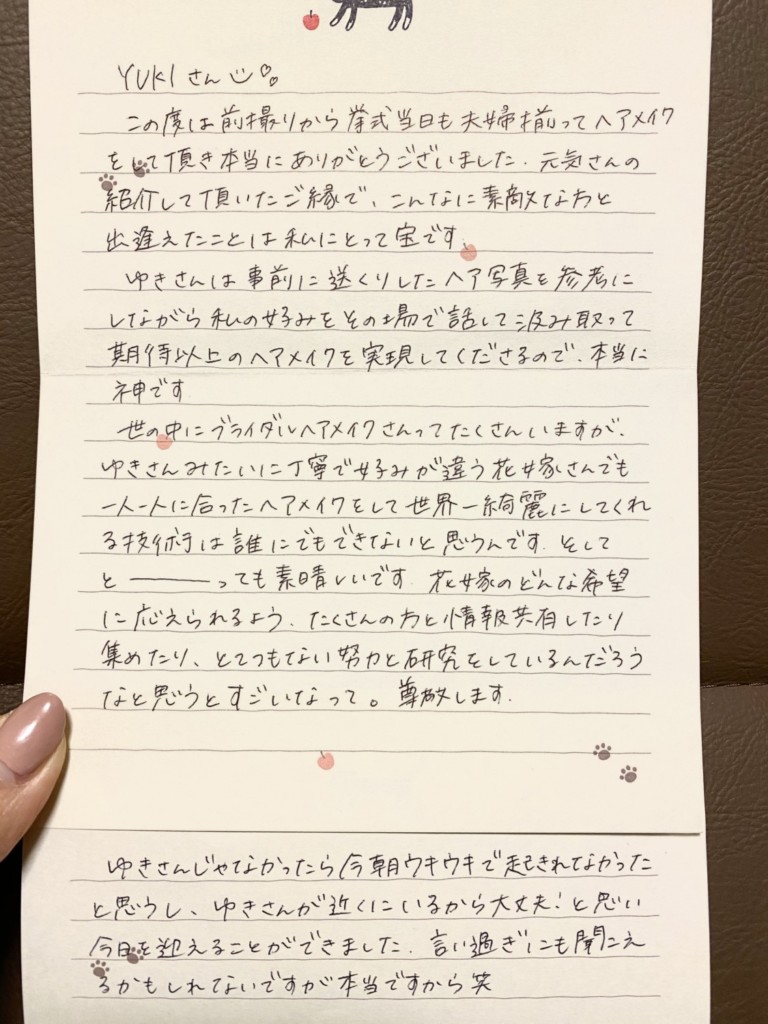 YUKIさん
この度は前撮りから挙式当日も夫婦揃ってヘアメイク
をして頂き本当にありがとうございました.元気さんの
紹介して頂いたご縁で、こんなに素敵な方と
出逢えたことは私にとって宝です.
ゆきさんは事前に送くりしたヘア写真を参考に
しながら私の好みをその場で話して汲み取って
期待以上のヘアメイクを実現してくださるので、本当に
神です
世の中にブライダルヘアメイクさんってたくさんいますが、
ゆきさんみたいに丁寧で好みが違う花嫁さんでも
一人一人に合ったヘアメイクをして世界一綺麗にしてくれ
る技術は誰にでもできないと思うんです.そして
と―――っても素晴しいです.花嫁のどんな希望
に応えられるよう、たくさんの方と情報共有したり
集めたり、とてつもない努力と研究をしているんだろう
なと思うとすごいなって。尊敬します.
ゆきさんじゃなかったら今朝ウキウキで起きれてなかった
と思うし、ゆきさんが近くにいるから大丈夫!と思い
今日を迎えることができました.言い過ぎにも聞こえ
るかもしれてないですが本当ですから笑